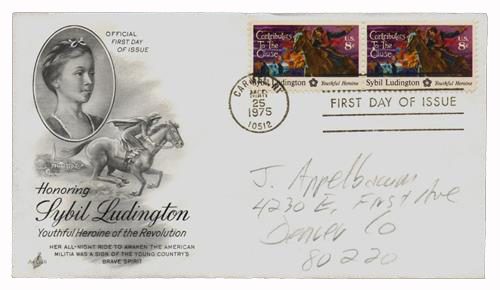 OFFICIAL
FIRST DAY
OF ISSUE
Honoring
Sybil Ludington
Youthful Heroine of the Revolution
HER ALL-NIGHT RIDE TO AWAKEN THE AMERICAN
MILITIA WAS A SIGN OF THE YOUNG COUNTRY'S
BRAVE SPIRIT
Contributors
To The
Cause...
U.S.
8¢
Sybil Ludington Youthful Heroine
Contributors
To The
Cause...
U.S.
8¢
Sybil Ludington Youthful Heroine
CARMEL, NY
MAR
25
1975
10512
FIRST DAY OF ISSUE
J. Appelbaum
4230 E. First Ave
Denver Co
80220